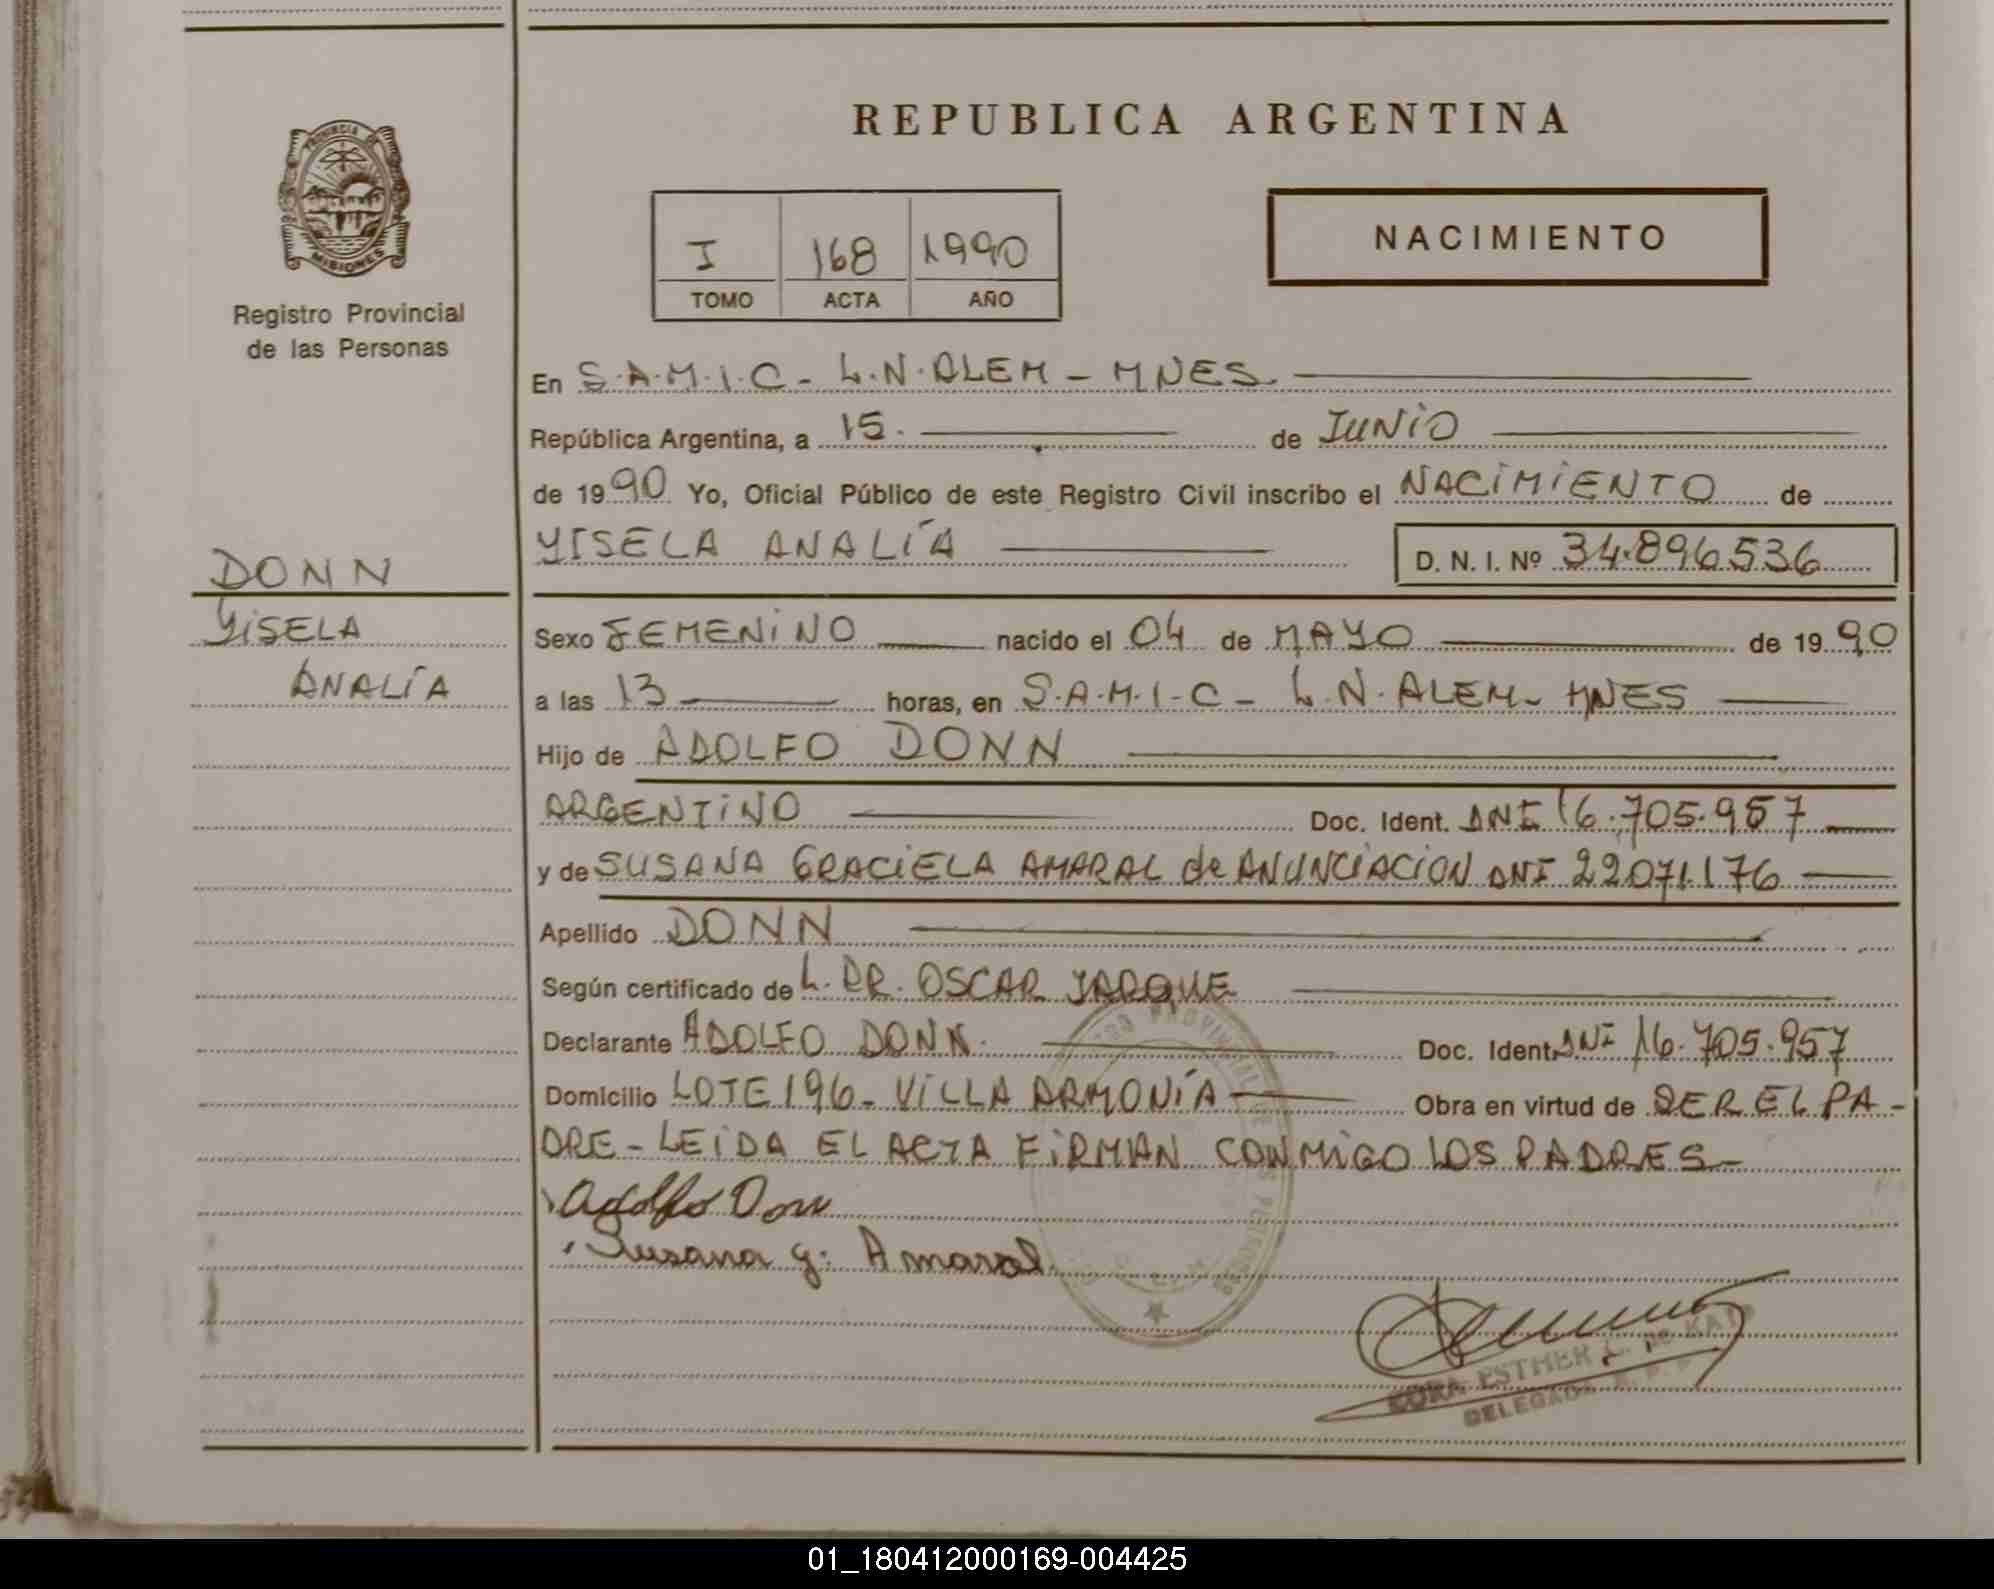 REPUBLICA ARGENTINA
PROVINCIA DE
MISIONES
Registro Provincial
de las Personas
I 168 1990
TOMO ACTA AÑO
NACIMIENTO
En S.A.M.I.C - L.N.ALEM - MNES.
República Argentina, a 15. de JUNIO
de 1990 Yo, Oficial Público de este Registro Civil inscribo el NACIMIENTO de
YISELA ANALÍA
D. N. I. Nº 34.896536
DONN
YISELA
ANALÍA
Sexo FEMENINO nacido el 04 de MAYO de 1990
a las 13 horas, en S.A.M.I.C - L.N.ALEM - MNES
Hijo de ADOLFO DONN
ARGENTINO Doc. Ident. DNI 16.705.957
y de SUSANA GRACIELA AMARAL de ANUNCIACION DNI 22071.176
Apellido DONN
Según certificado de L. DR. OSCAR JARQUE
Declarante ADOLFO DONN. Doc. Ident. DNI 16.705.957
Domicilio LOTE 196 - VILLA ARMONÍA Obra en virtud de SER EL PA-
DRE - LEIDA EL ACTA FIRMAN CONMIGO LOS PADRES -
Adolfo Donn
Susana G. Amaral
ESTHER L. de KATO
DELEGADA R. P. P.
01_180412000169-004425